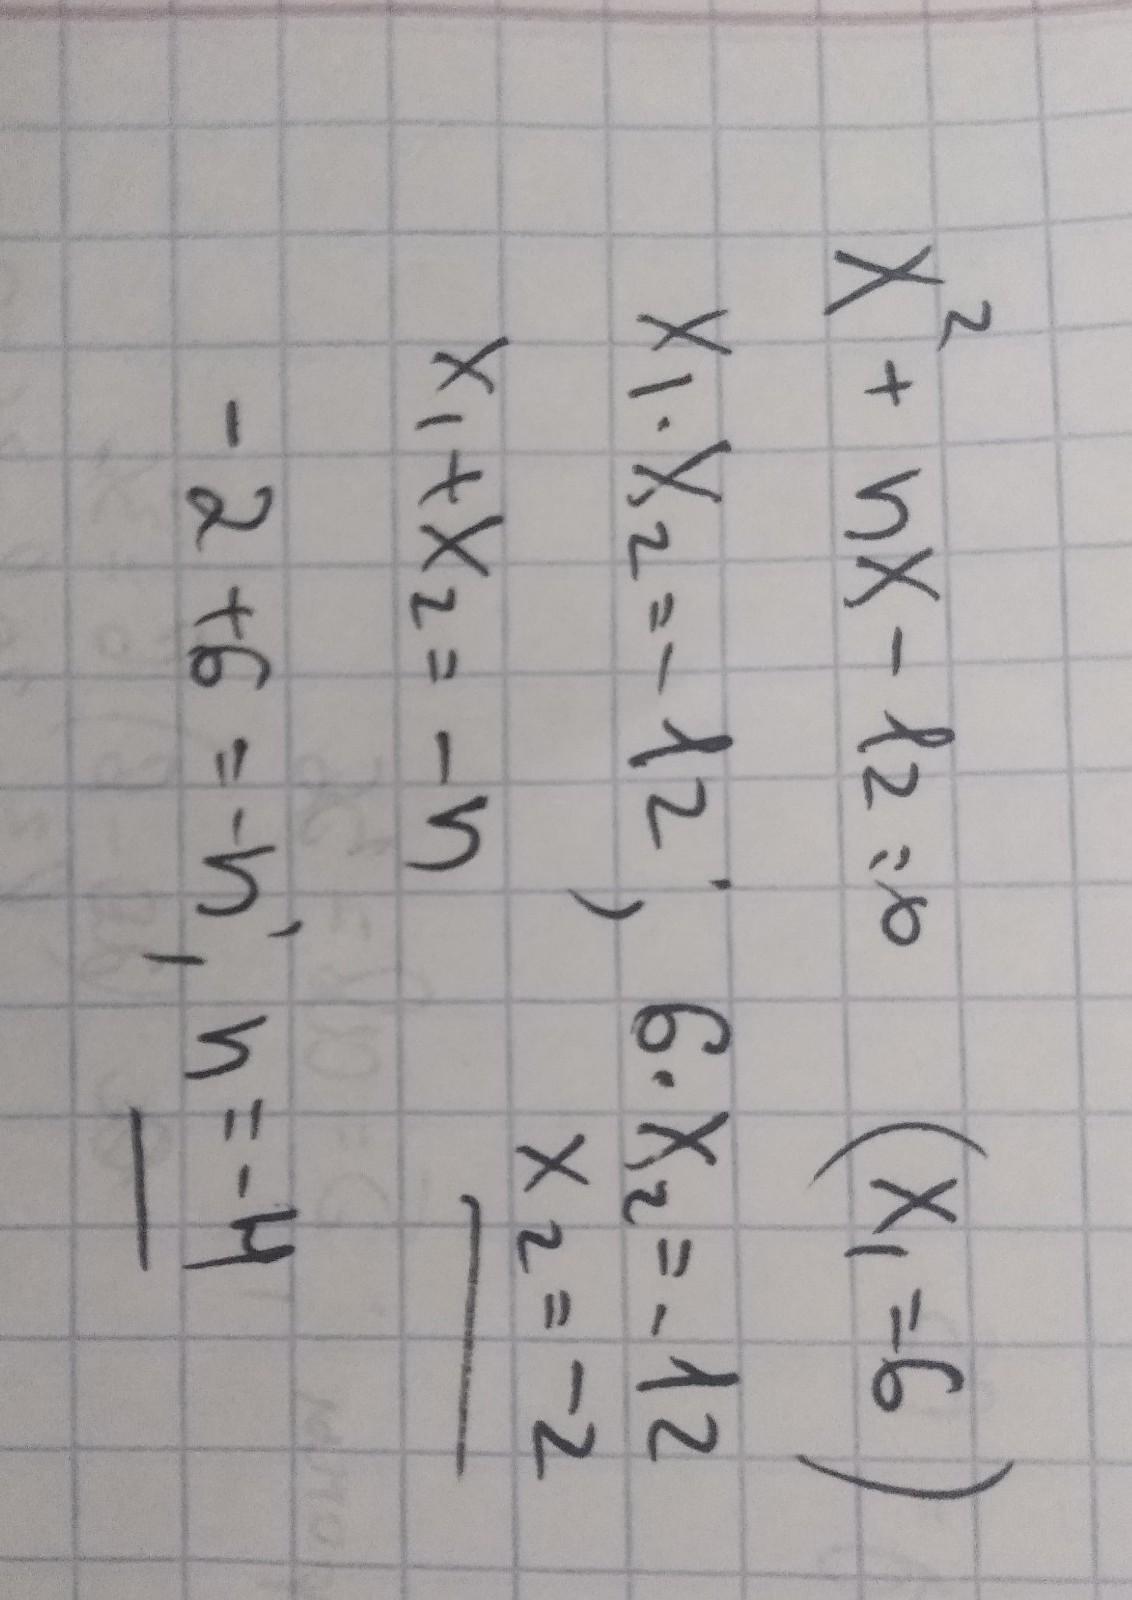 x² + nx - 12 = 0 (x₁ = 6)
x₁ · x₂ = -12 ; 6 · x₂ = -12
x₂ = -2
x₁ + x₂ = -n
-2 + 6 = -n, n = -4